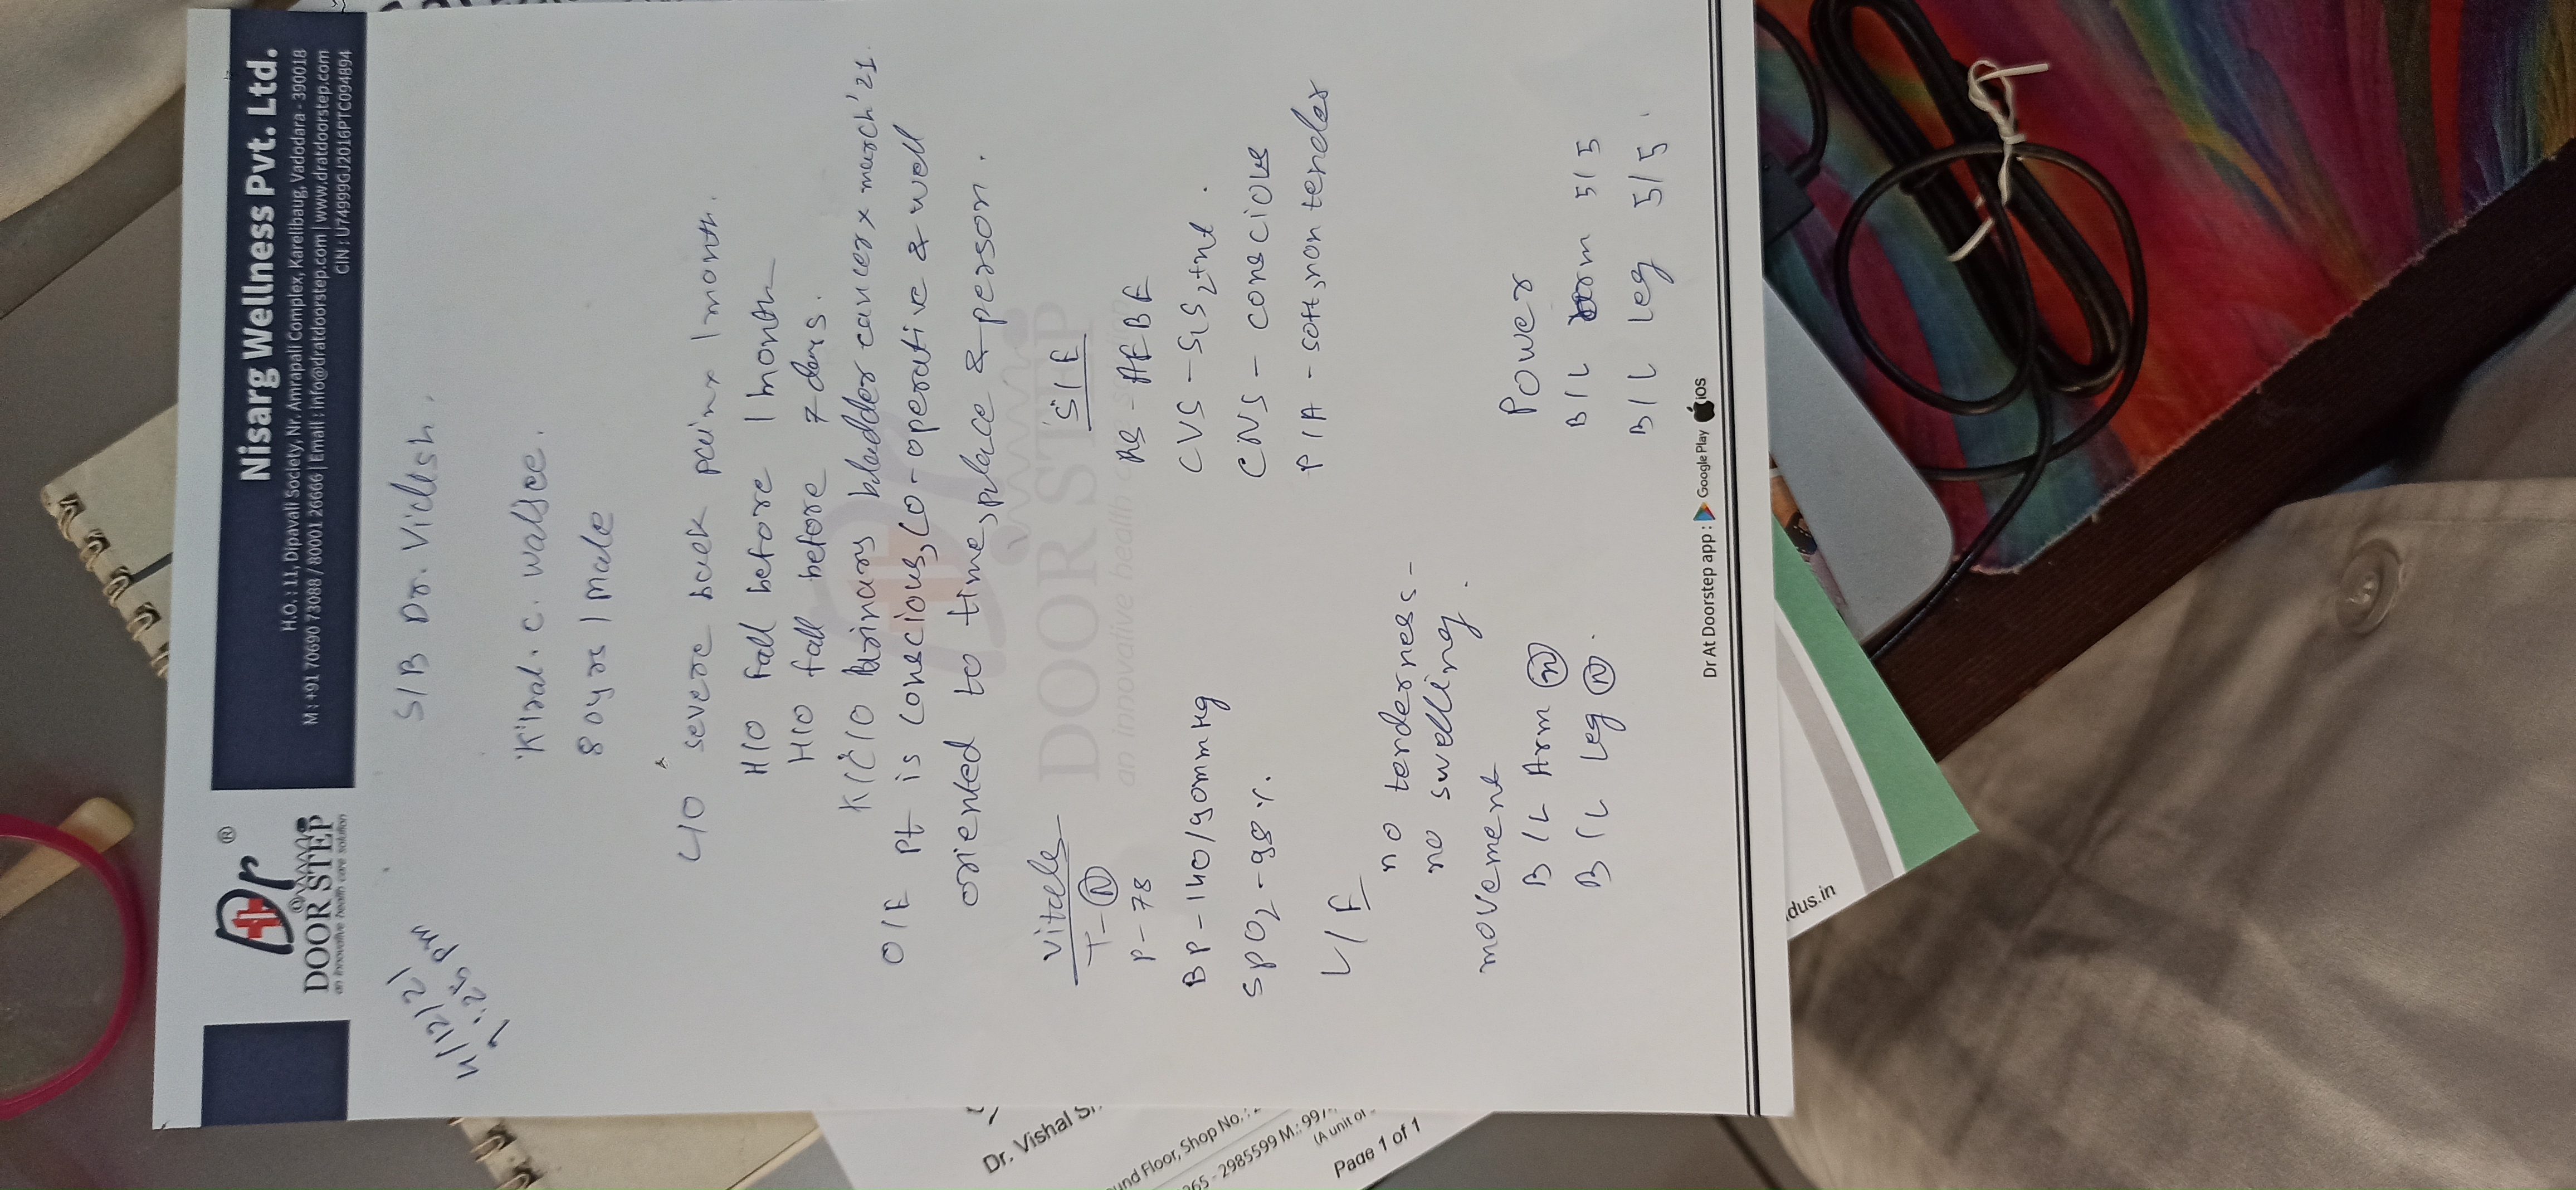 Dr
®
DOOR STEP
an innovative health care solution
Nisarg Wellness Pvt. Ltd.
H.O. : 11, Dipavali Society, Nr. Amrapali Complex, Karelibaug, Vadodara - 390018
M : +91 70690 73088 / 80001 26666 | Email : info@dratdoorstep.com | www.dratdoorstep.com
CIN : U74999GJ2016PTC094894
pm
S/B Dr.
Kiral. c. walsee.
80 yrs / male
C/O severe back pain x 1 month.
H/O fall before 1 month
H/O fall before 7 days.
K/C/O Urinary bladder cancer x march'21.
O/E Pt is conscious, co-operative & well
oriented to time, place & person.
Vitals
T - N
P - 78
BP - 140/90 mmHg
SPO2 - 98 %.
S/E
RS - AEBE
CVS - S1S2 +nt.
CNS - conscious
P/A - soft, non tender
L/E
no tenderness -
no swelling.
movement
B/L Arm N
B/L Leg N.
Power
B/L arm 5/5
B/L Leg 5/5.
DOOR STEP
Dr At Doorstep app : Google Play iOS
Dr. Vishal
Floor, Shop No. :
2985599 M.:
(A unit of
Page 1 of 1
dus.in